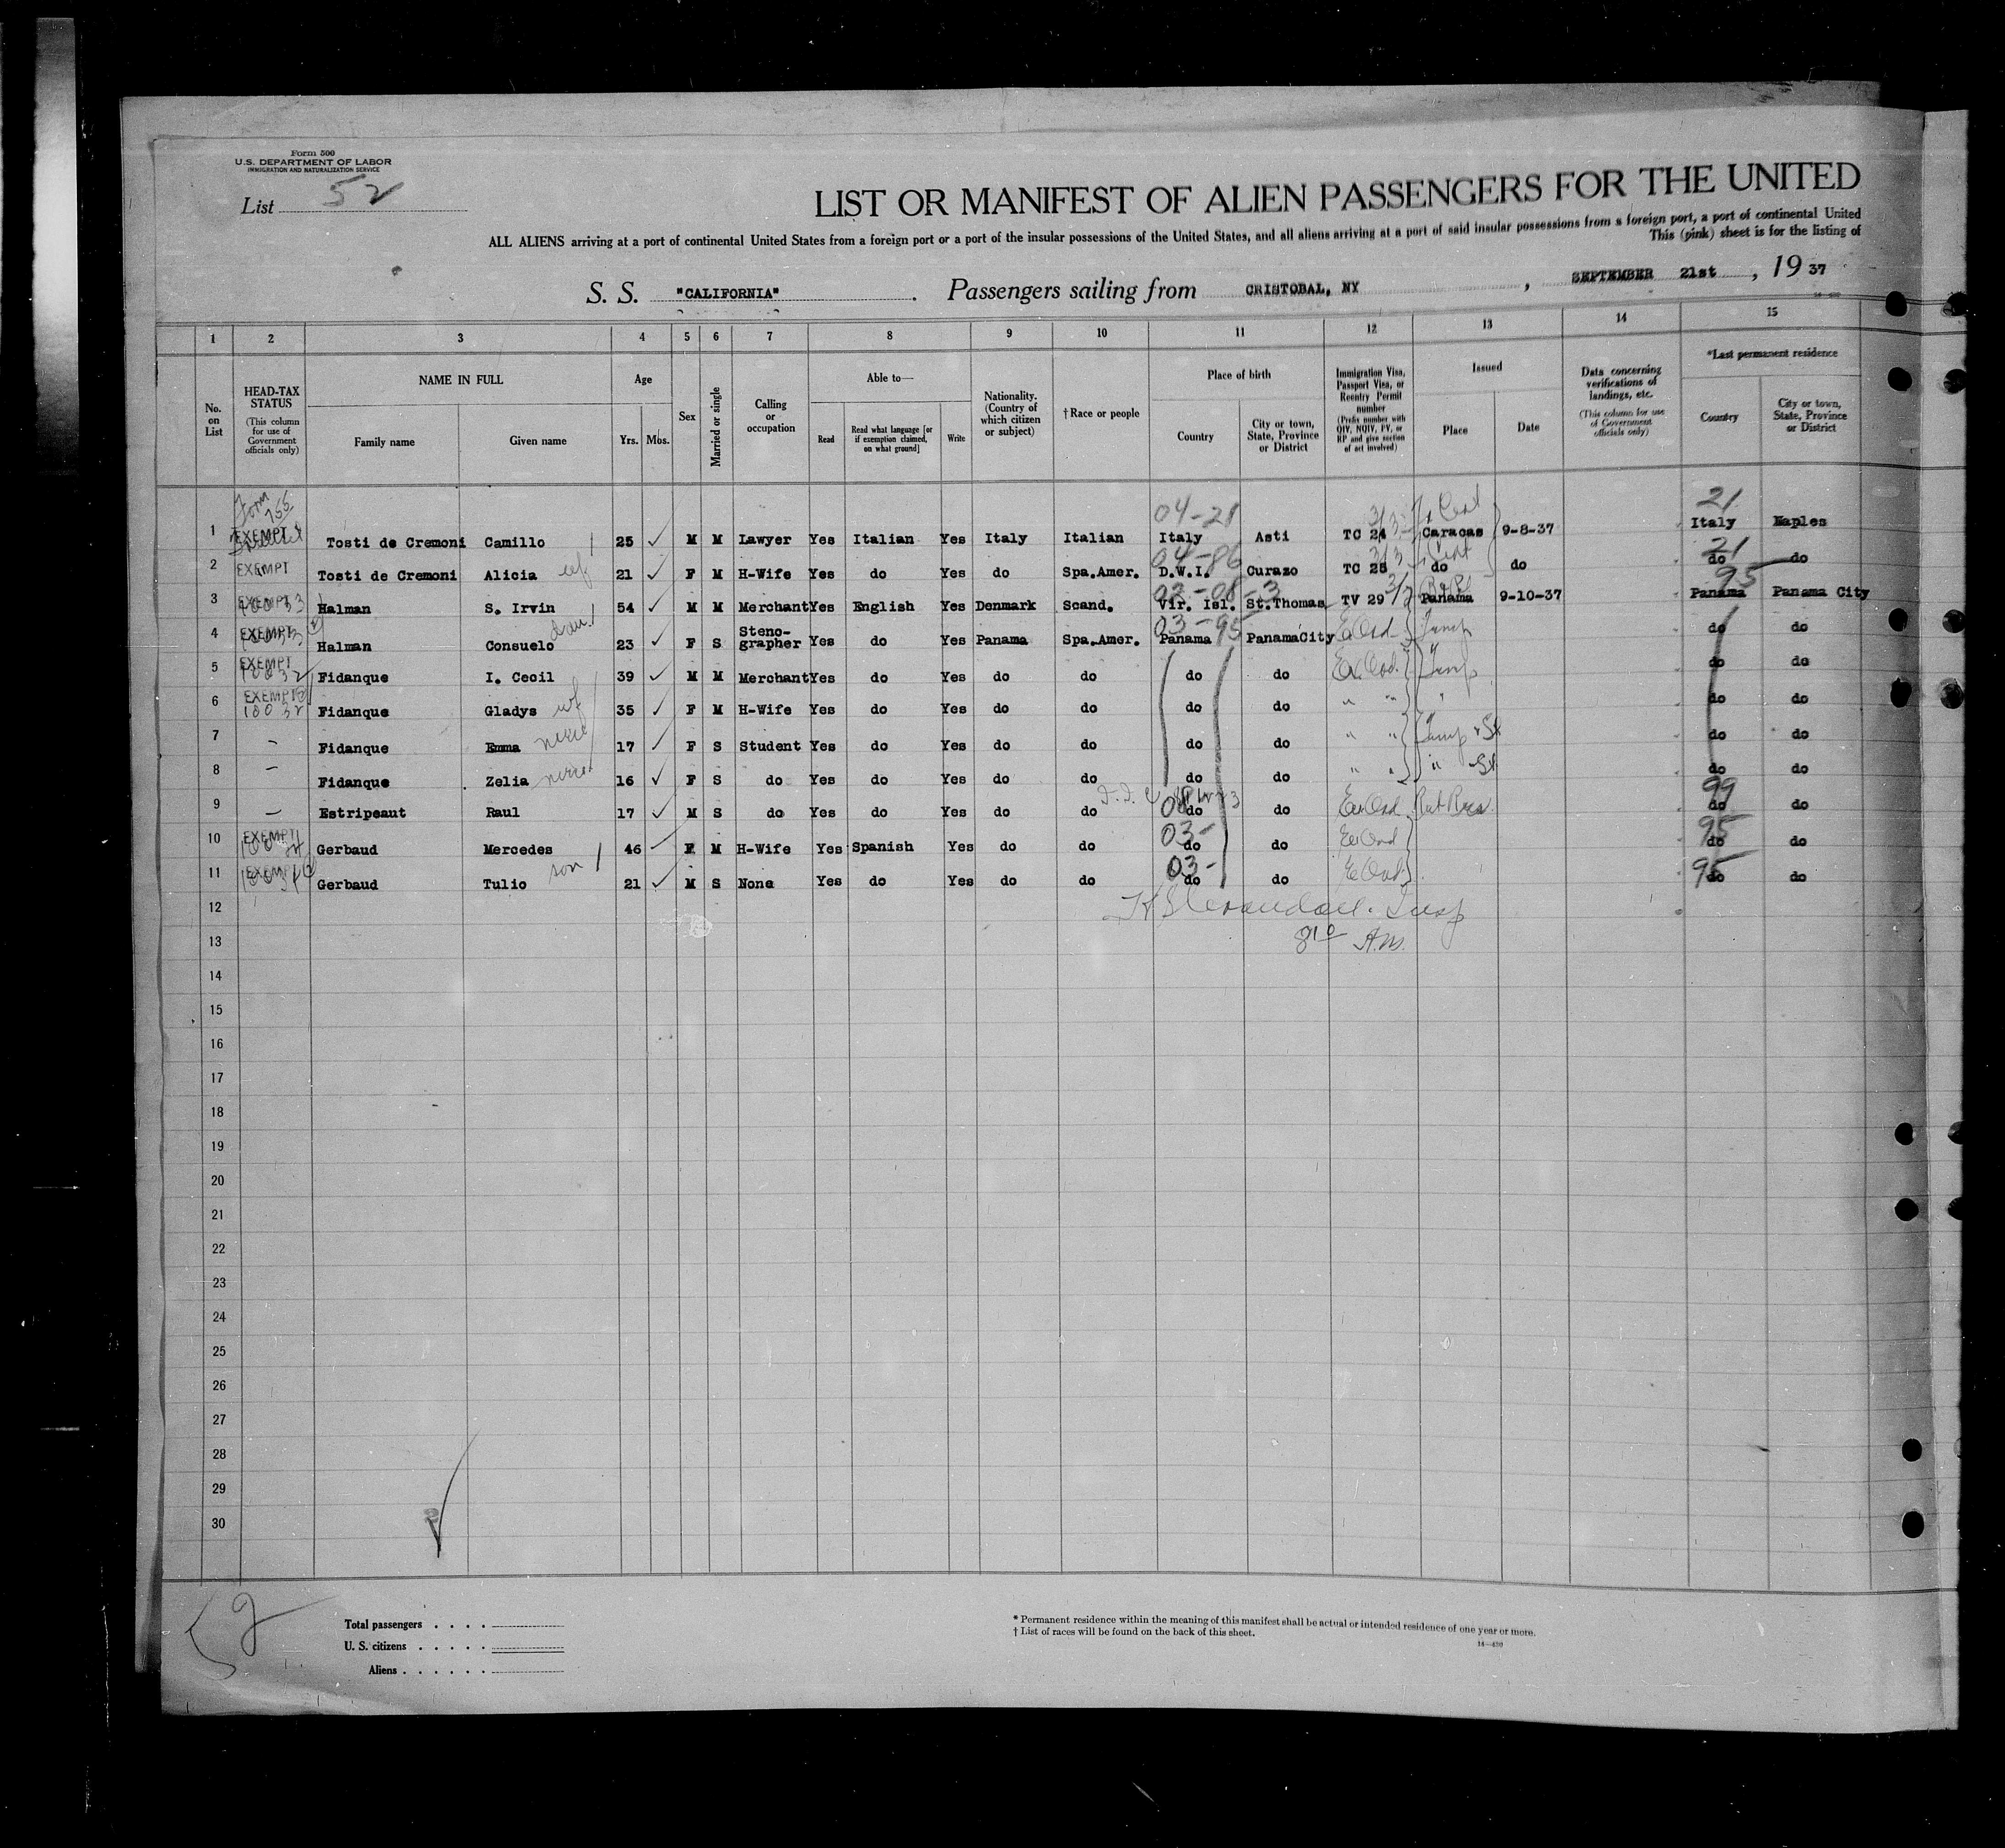 Form 500
U.S. DEPARTMENT OF LABOR
IMMIGRATION AND NATURALIZATION SERVICE
List 52
LIST OR MANIFEST OF ALIEN PASSENGERS FOR THE UNITED
ALL ALIENS arriving at a port of continental United States from a foreign port or a port of the insular possessions of the United States, and all aliens arriving at a port of said insular possessions from a foreign port, a port of continental United
This (pink) sheet is for the listing of
S. S. "CALIFORNIA" . Passengers sailing from CRISTOBAL, NY , SEPTEMBER 21st , 19 37
1 2 3 4 5 6 7 8 9 10 11 12 13 14 15
No. on List
HEAD-TAX STATUS
(This column for use of Government officials only)
NAME IN FULL
Family name Given name
Age
Yrs. Mos.
Sex
Married or single
Calling or occupation
Able to—
Read Read what language [or if exemption claimed, on what ground] Write
Nationality. (Country of which citizen or subject)
†Race or people
Place of birth
Country City or town, State, Province or District
Immigration Visa, Passport Visa, or Reentry Permit number
(Prefix number with QIV, NQIV, PV, or RP and give section of act involved)
Issued
Place Date
Data concerning verifications of landings, etc.
(This column for use of Government officials only)
*Last permanent residence
Country City or town, State, Province or District
Form 04-21 21
1 EXEMPT Tosti de Cremoni Camillo 25 M M Lawyer Yes Italian Yes Italy Italian Italy Asti TC 24 Caracas 9-8-37 Italy Naples
04-86 21
2 EXEMPT Tosti de Cremoni Alicia wf 21 F M H-Wife Yes do Yes do Spa.Amer. D.W.I. Curazo TC 25 do do do do
95
3 EXEMPT Halman S. Irvin 54 M M Merchant Yes English Yes Denmark Scand. Vir. Isl. St.Thomas TV 29 Panama 9-10-37 Panama Panama City
03-95
4 EXEMPT Halman Consuelo dau. 23 F S Steno-grapher Yes do Yes Panama Spa.Amer. Panama PanamaCity do do
5 EXEMPT Fidanque I. Cecil 39 M M Merchant Yes do Yes do do do do do do
6 EXEMPT Fidanque Gladys wf 35 F M H-Wife Yes do Yes do do do do " " " do do
7 - Fidanque Emma niece 17 F S Student Yes do Yes do do do do " " do do
8 - Fidanque Zelia niece 16 F S do Yes do Yes do do do do " " " do do
99
9 - Estripeaut Raul 17 M S do Yes do Yes do do do do do do
03- 95
10 EXEMPT Gerbaud Mercedes 46 F M H-Wife Yes Spanish Yes do do do do do do
03- 95
11 EXEMPT Gerbaud Tulio son 21 M S None Yes do Yes do do do do do do
12
13 8 10 A.M.
14
15
16
17
18
19
20
21
22
23
24
25
26
27
28
29
30
2
Total passengers . . . .
U. S. citizens . . . . .
Aliens . . . . . .
* Permanent residence within the meaning of this manifest shall be actual or intended residence of one year or more.
† List of races will be found on the back of this sheet.
14—430